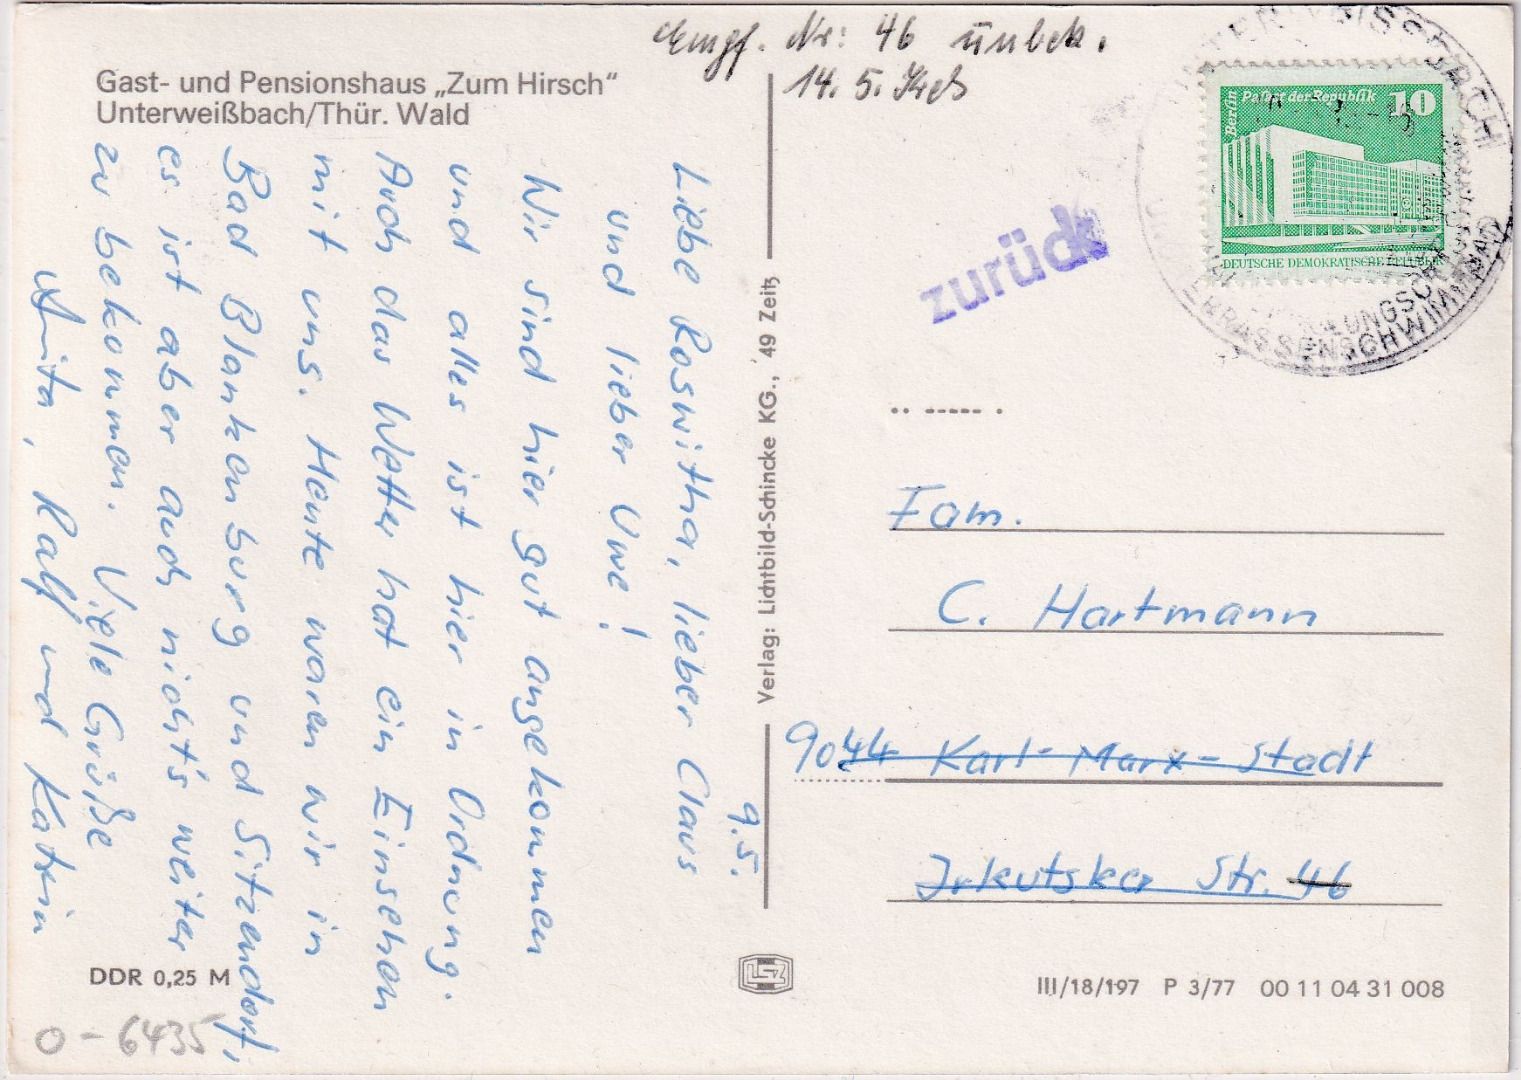 Gast- und Pensionshaus „Zum Hirsch“
Unterweißbach/Thür. Wald
Empf. Nr: 46 unbek.
14. 5.
Berlin Palast der Republik 10
DEUTSCHE DEMOKRATISCHE REPUBLIK
TERRASSENSCHWIMMBAD
zurück
9.5.
Liebe Roswitha, lieber Claus
und lieber Uwe!
Wir sind hier gut angekommen
und alles ist hier in Ordnung.
Auch das Wetter hat ein Einsehen
mit uns. Heute waren wir in
Bad Blankenburg und Sitzendorf,
es ist aber auch nicht's weiter
zu bekommen. Viele Grüße
Anita, Ralf und Katrin
Verlag: Lichtbild-Schincke KG., 49 Zeitz
Fam.
C. Hartmann
9044 Karl-Marx-Stadt
Irkutsker Str. 46
DDR 0,25 M
III/18/197 P 3/77 00 11 04 31 008
O-6435